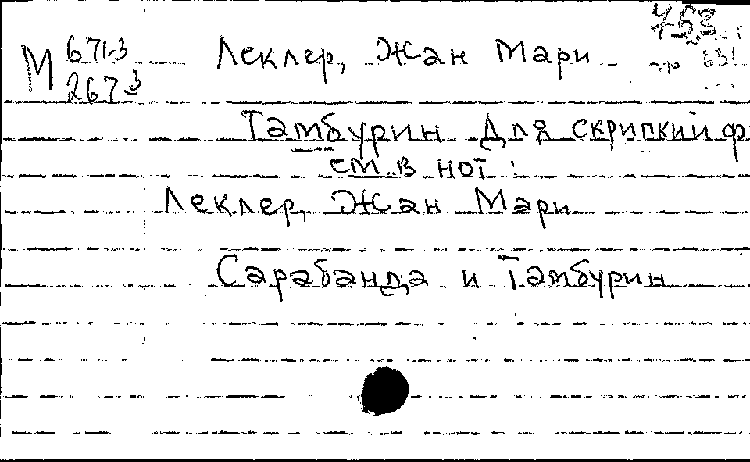 М 671-3 Леклер, Жан Мари 753
267-3
Тамбурин для скрипки и ф
см. в нот:
Леклер, Жан Мари
Сарабанда и Тамбурин